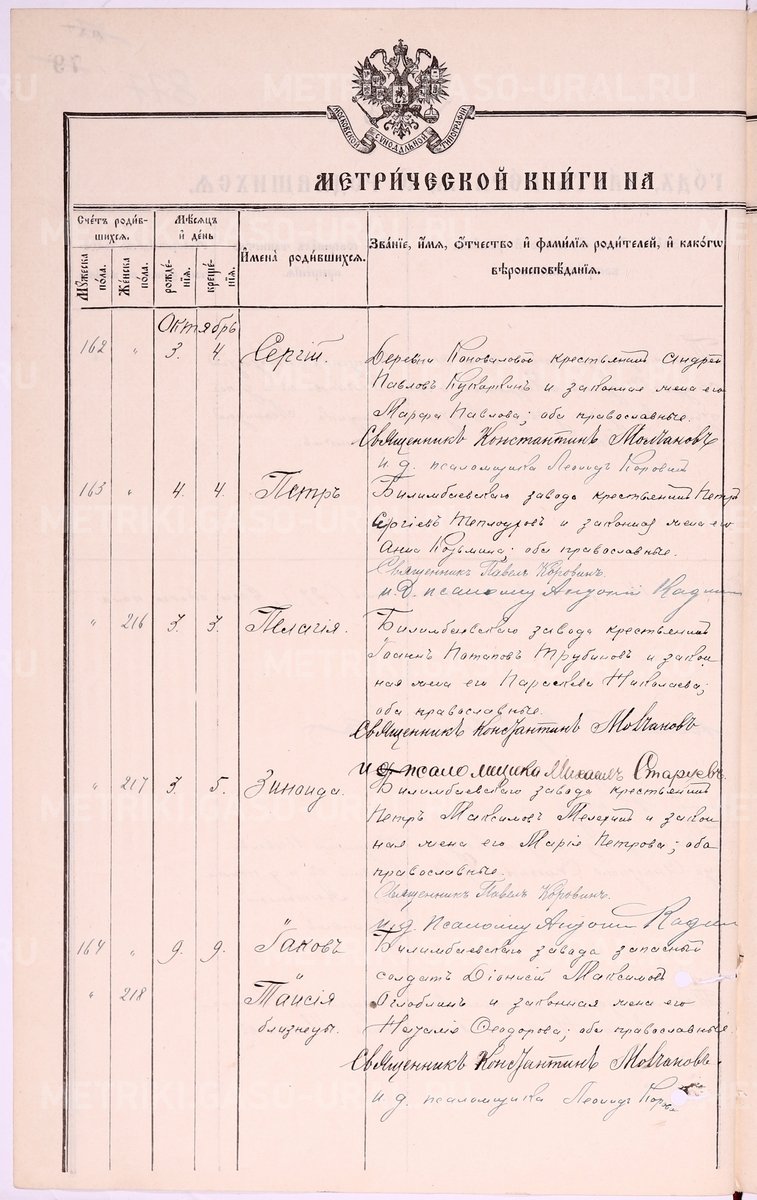 МОСКОВСКОЙ СѴНОДАЛЬНОЙ ТИПОГРАФІИ
МЕТРИ́ЧЕСКОЙ КНИ́ГИ НА
Сче́тъ роди́в-
шихся.
Мѣ́сяцъ
и҆ де́нь
И҆мена̀ роди́вшихся.
Зва́нїе, и҆́мя, ѻ҆́тчество и҆ фами́лїя роди́телей, и҆ како́гѡ
вѣроисповѣ́данїя.
Му́жеска по́ла.
Же́нска по́ла.
рожде́нїя.
креще́нїя.
Октябрь
162 " 3. 4. Сергій. Деревни Коноваловой крестьянинъ Андрей
Павловъ и законная жена его
Марѳа Павлова; оба православные.
Священникъ Константинъ Молчановъ
и. д. псаломщика Леонидъ Коровин
163 " 4. 4. Петръ Билимбаевскаго завода крестьянинъ Петръ
Сергіевъ Теплоуховъ и законная жена его
Анна Козьмина; оба православные.
Священникъ Павелъ Коровинъ.
и. д. псаломщ
" 216 3. 3. Пелагія. Билимбаевскаго завода крестьянинъ
Іоаннъ Потаповъ Трубиновъ и закон
ная жена его Параскева Николаева;
оба православные.
Священникъ Константинъ Молчановъ
и д псаломщика Михаилъ Старцевъ.
" 217 3. 5. Зинаида. Билимбаевскаго завода крестьянинъ
Петръ Максимовъ и закон
ная жена его Марія Петрова; оба
православные.
Священникъ Павелъ Коровинъ.
и. д. псаломщ
164 " 9. 9. Іаковъ Билимбаевскаго завода запасный
солдатъ Діонисій Максимовъ
" 218 Таисія Оглоблинъ и законная жена его
близнецы. Наталія Ѳеодорова; оба православные
Священникъ Константинъ Молчановъ.
и. д. псаломщика Леонидъ Корови
METRIKI.SASO-URAL.RU